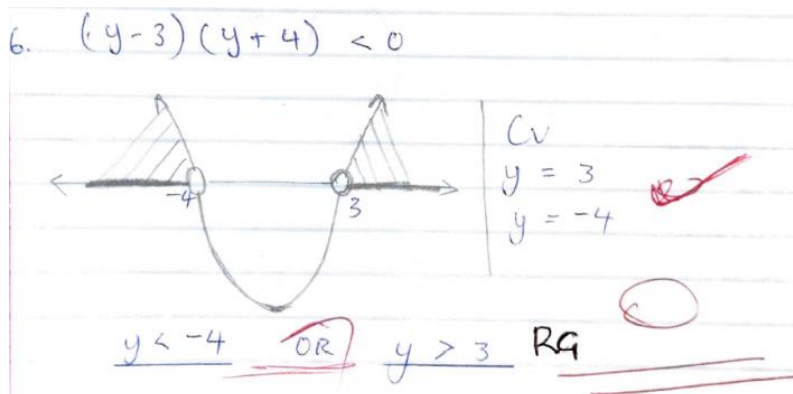 6. (y-3)(y+4) < 0
Cv
y = 3
y = -4
-4 3
y < -4 OR y > 3 RG